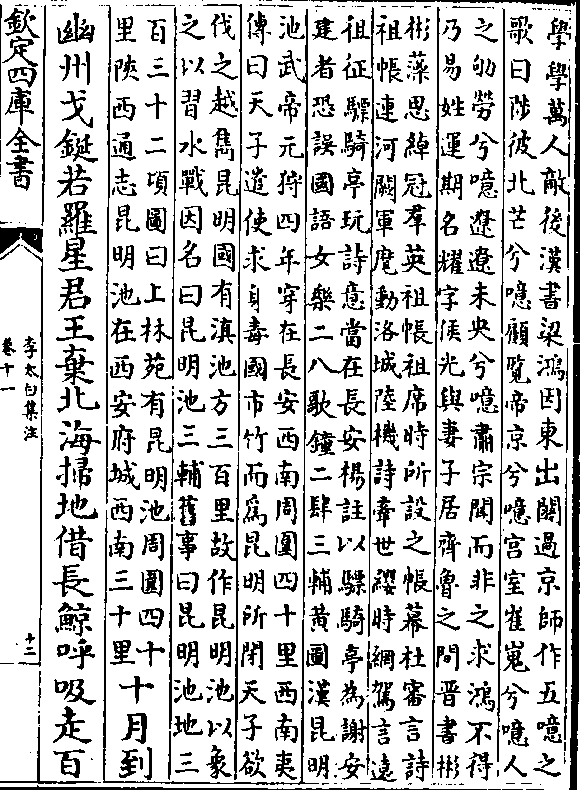 學學萬人敵後漢書梁鴻因東出關過京師作五噫之
歌曰陟彼北芒兮噫顧覽帝京兮噫宫室崔嵬兮噫人
之劬勞兮噫遼遼未央兮噫肅宗聞而非之求鴻不得
乃易姓運期名耀字侯光與妻子居齊魯之間晉書彬
彬藻思綽冠羣英祖帳祖席時所設之帳幕杜審言詩
祖帳連河闕軍麾動洛城陸機詩牽世纓時網駕言遠
祖征驃騎亭玩詩意當在長安楊註以驃騎亭為謝安
建者恐誤國語女樂二八歌鐘二肆三輔黃圖漢昆明
池武帝元狩四年穿在長安西南周圍四十里西南夷
傳曰天子遣使求身毒國市竹而為昆明所閉天子欲
伐之越嶲昆明國有滇池方三百里故作昆明池以象
之以習水戰因名曰昆明池三輔舊事曰昆明池地三
百三十二頃圖曰上林苑有昆明池周圍四十
里陜西通志昆明池在西安府城西南三十里
十月到
幽州戈鋋若羅星君王棄北海掃地借長鯨呼吸走百
欽定四庫全書
李太白集注
卷十一
十二